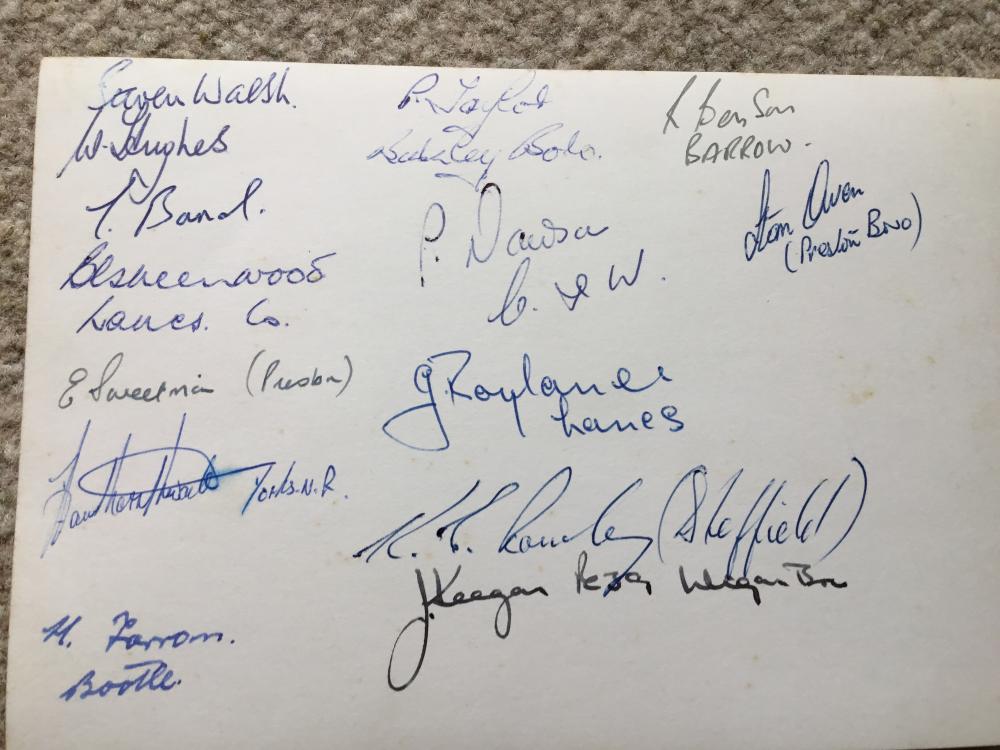 Walsh.
W. Hughes
T. Band.
Greenwood
Lancs. Co.
E Sweetman (Preston)
Yorks. N.R.
H. Farrom.
Bootle.
P. Taylor
Boro.
P. Dawson
C. & W.
G. Roylance
Lancs
K. (Sheffield)
J. Keegan Wigan Bro
Benson
BARROW.
Stan Owen
(Preston Boro)